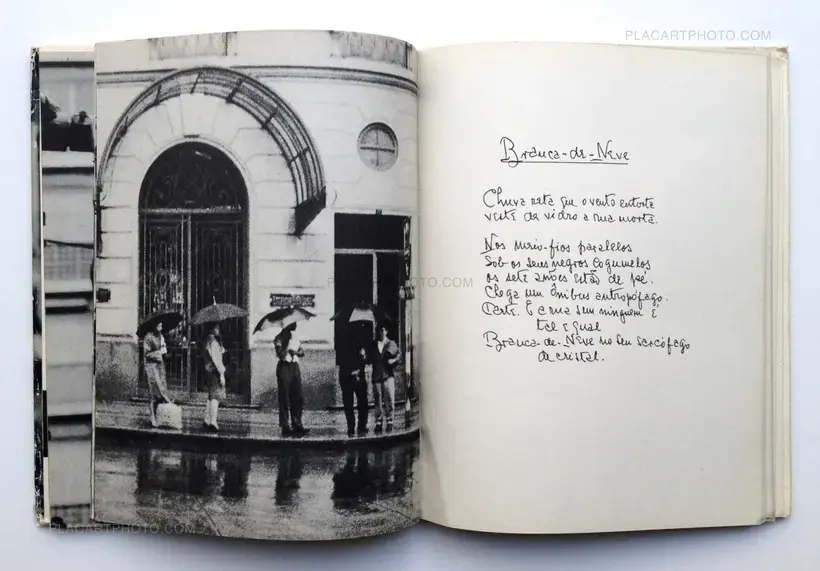 PLACARTPHOTO.COM
Branca-de-Neve
Chuva reta que o vento entorta
veste de vidro a rua morta.
Nos meio-fios paralelos
Sob os seus negros cogumelos
os sete anões estão de pé.
Chega um ônibus antropófago.
Parte. E a rua sem ninguém é
tal e qual
Branca-de-Neve no seu sarcófago
de cristal.
PLACARTPHOTO.COM
PLACARTPHOTO.COM